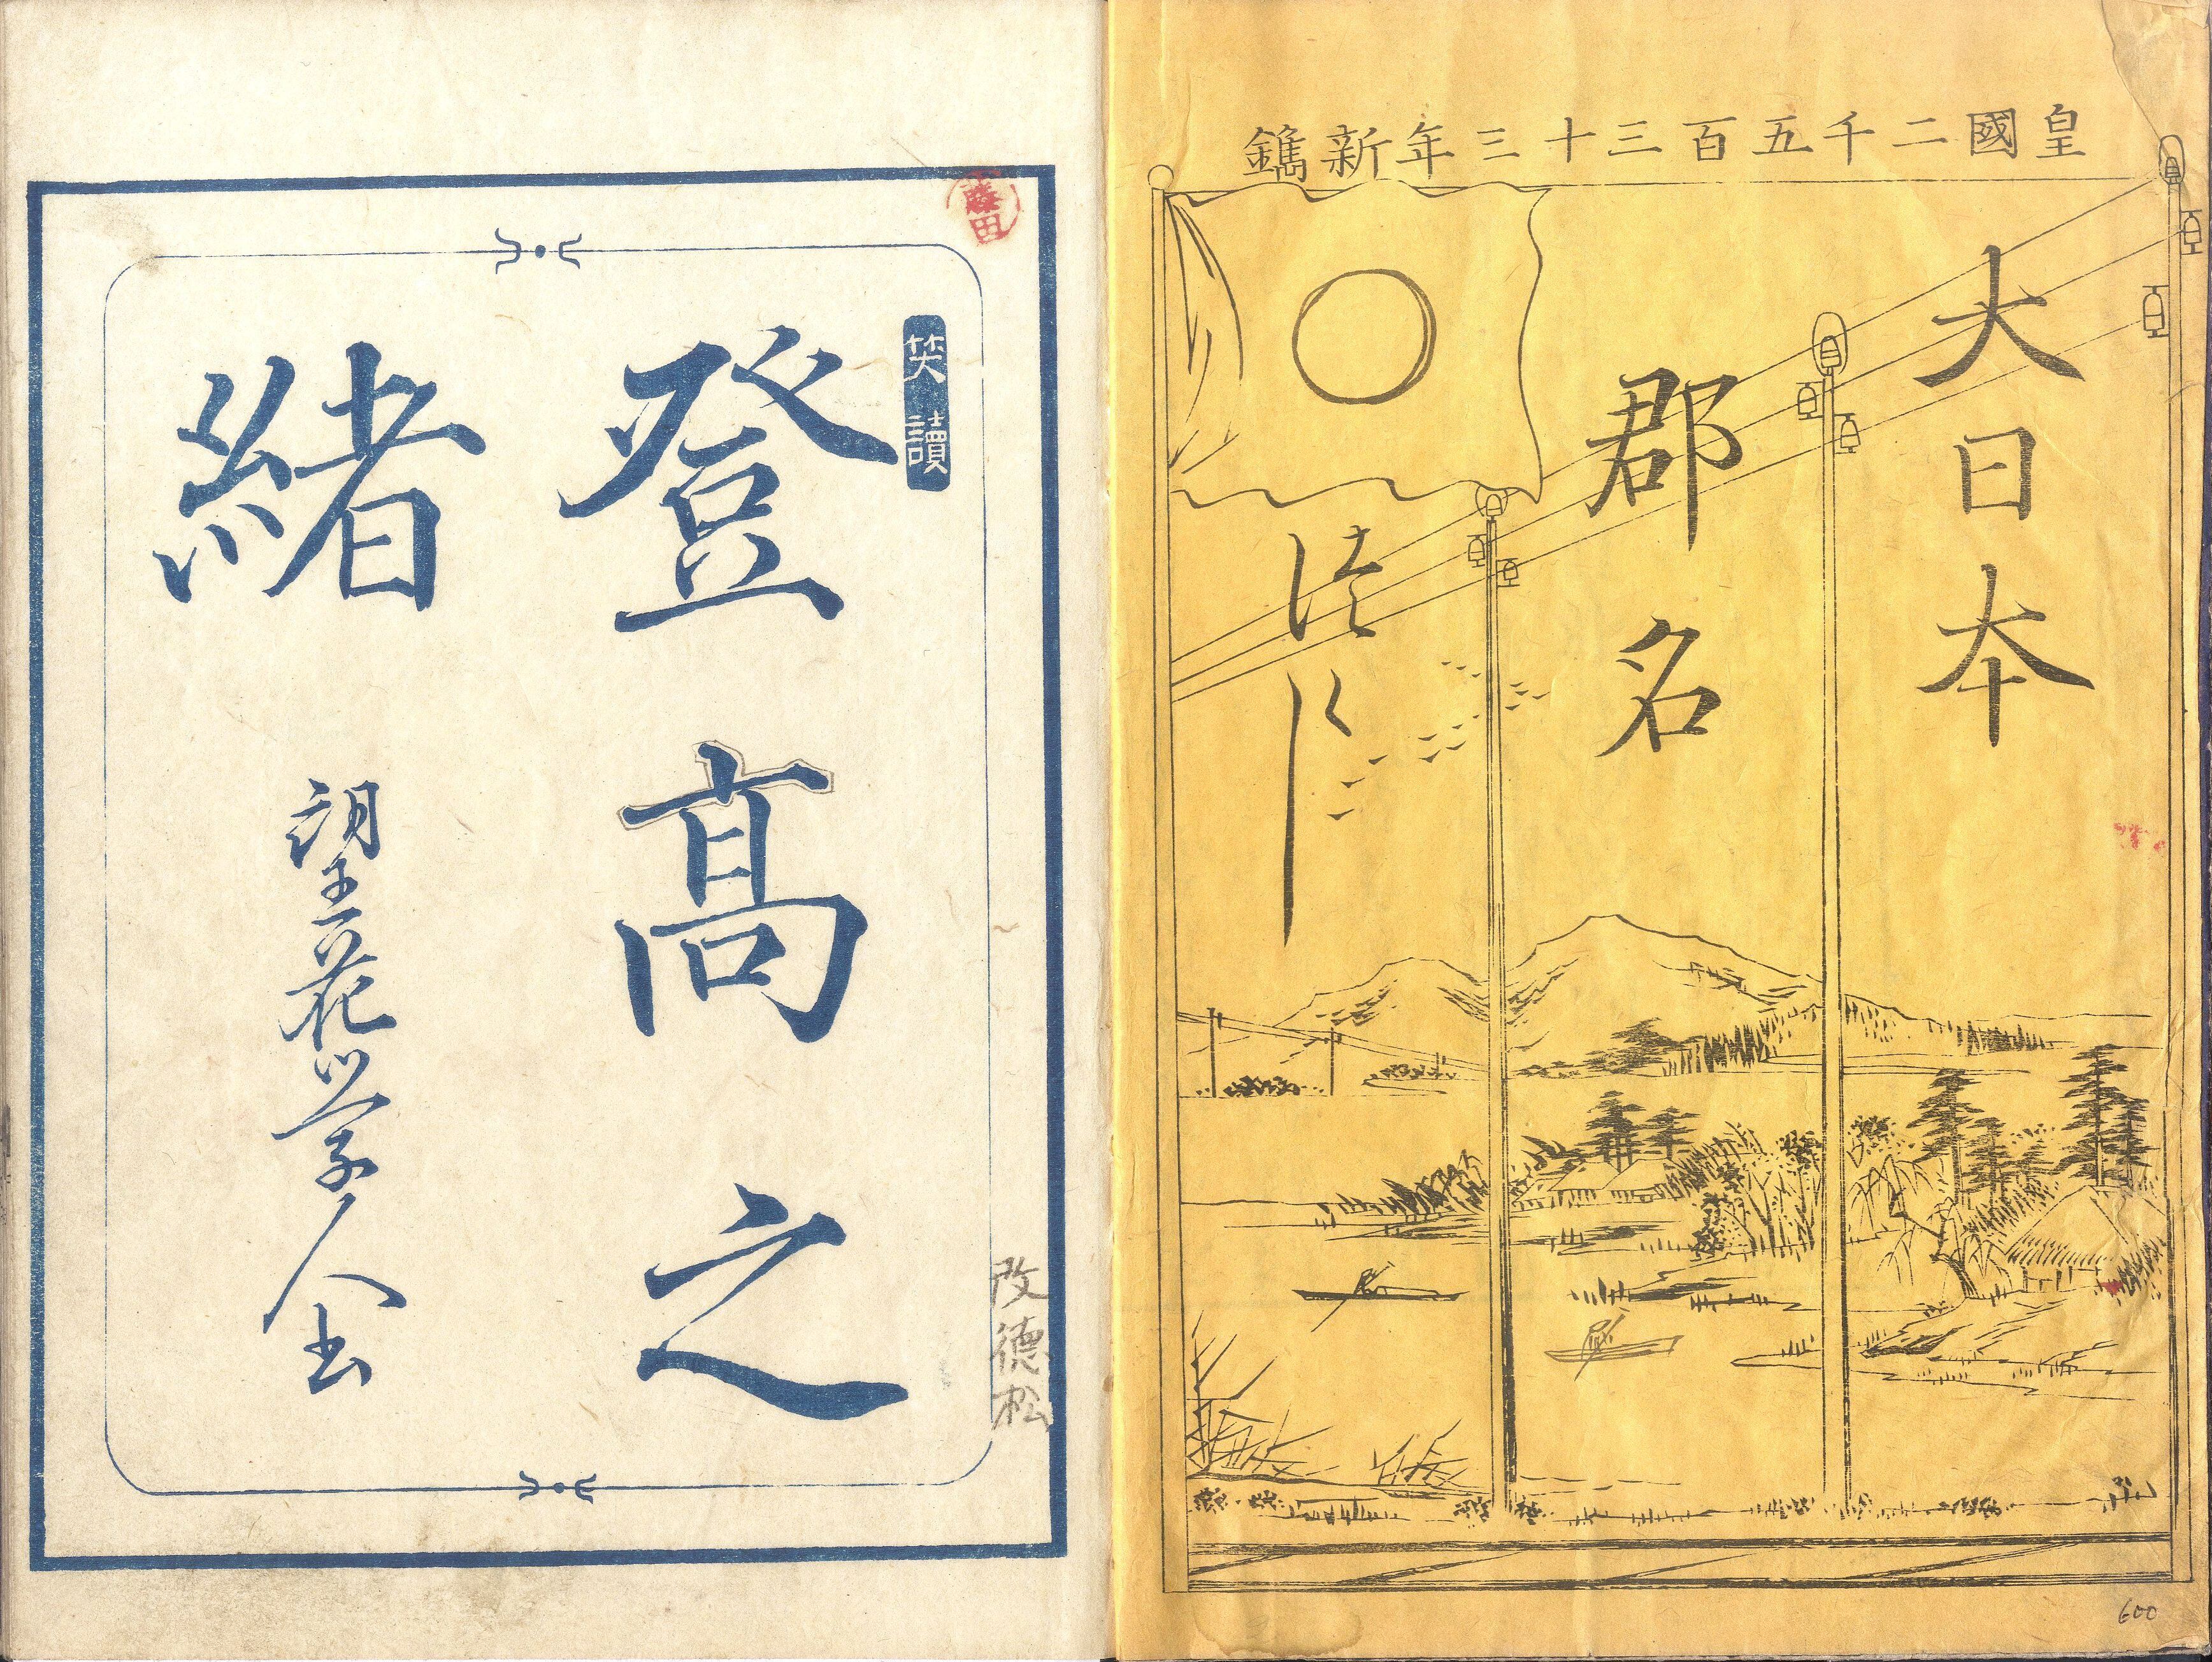 皇國二千五百三十三年新鐫
大日本
郡名
つくし
600
藤田
笑讀
登髙之
緒
望花学人書
改徳松